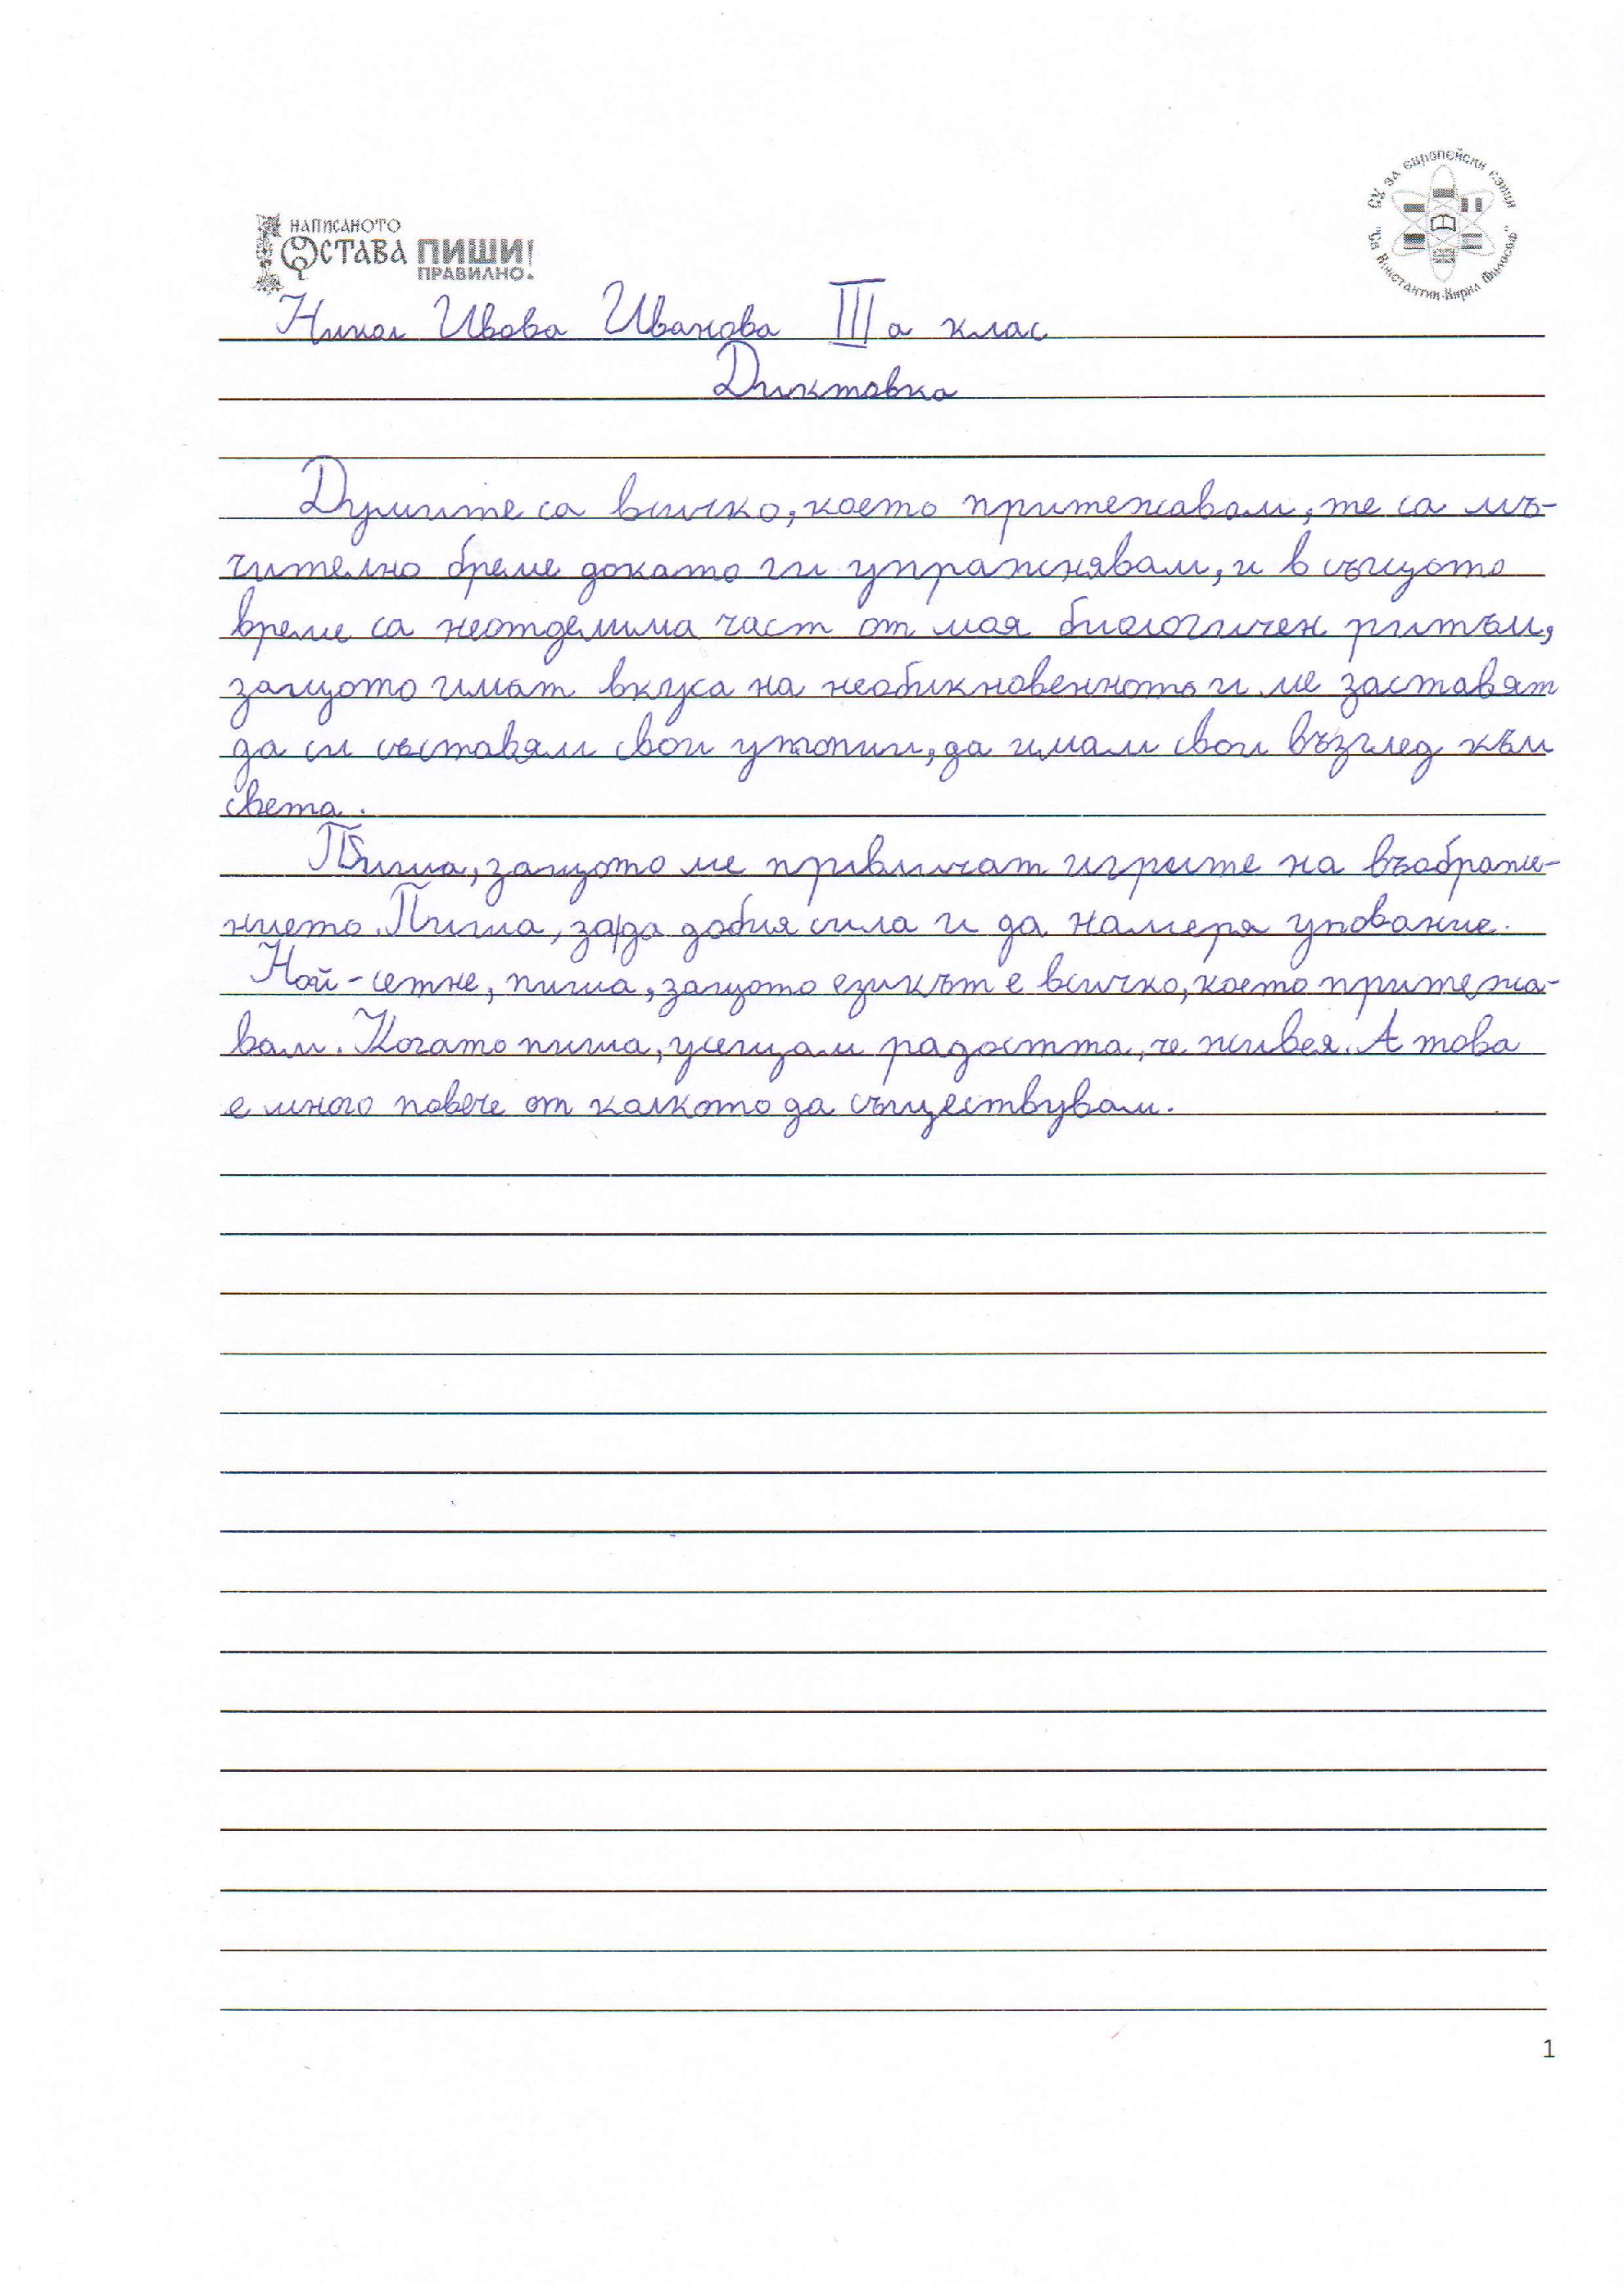 НАПИСАНОТО
ОСТАВА ПИШИ!
ПРАВИЛНО.
СУ за европейски езици
"Св. Константин-Кирил Философ"
Никол Ивова Иванова III а клас
Диктовка
Думите са всичко, което притежавам, те са мъ-
чително бреме докато ги упражнявам, и в същото
време са неотделима част от моя биологичен ритъм,
защото имат вкуса на необикновенното и ме заставят
да си съставям свои утопии, да имам свои възглед към
света.
Пиша, защото ме привличат игрите на въображе-
нието. Пиша, за да добия сила и да намеря упование.
Най-сетне, пиша, защото езикът е всичко, което притежа-
вам. Когато пиша, усещам радостта, че живея. А това
е много повече от колкото да съществувам.
1